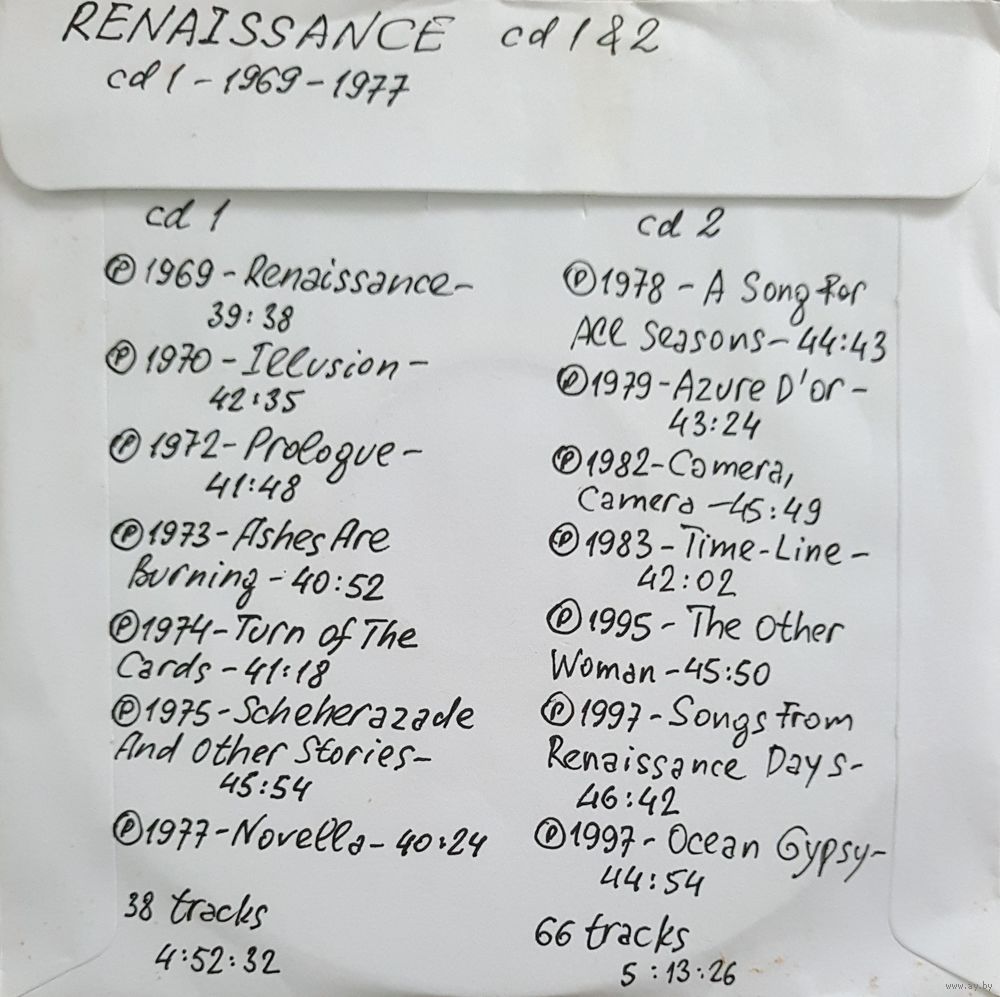 RENAISSANCE cd 1 & 2
cd 1 - 1969 - 1977
cd 1
Ⓟ 1969 - Renaissance -
39:38
Ⓟ 1970 - Illusion -
42:35
Ⓟ 1972 - Prologue -
41:48
Ⓟ 1973 - Ashes Are
Burning - 40:52
Ⓟ 1974 - Turn of The
Cards - 41:18
Ⓟ 1975 - Scheherazade
And Other Stories -
45:54
Ⓟ 1977 - Novella - 40:24
38 tracks
4:52:32
cd 2
Ⓟ 1978 - A Song For
All Seasons - 44:43
Ⓟ 1979 - Azure D'or -
43:24
Ⓟ 1982 - Camera,
Camera - 45:49
Ⓟ 1983 - Time-Line -
42:02
Ⓟ 1995 - The Other
Woman - 45:50
Ⓟ 1997 - Songs From
Renaissance Days -
46:42
Ⓟ 1997 - Ocean Gypsy -
44:54
66 tracks
5:13:26
www.ay.by